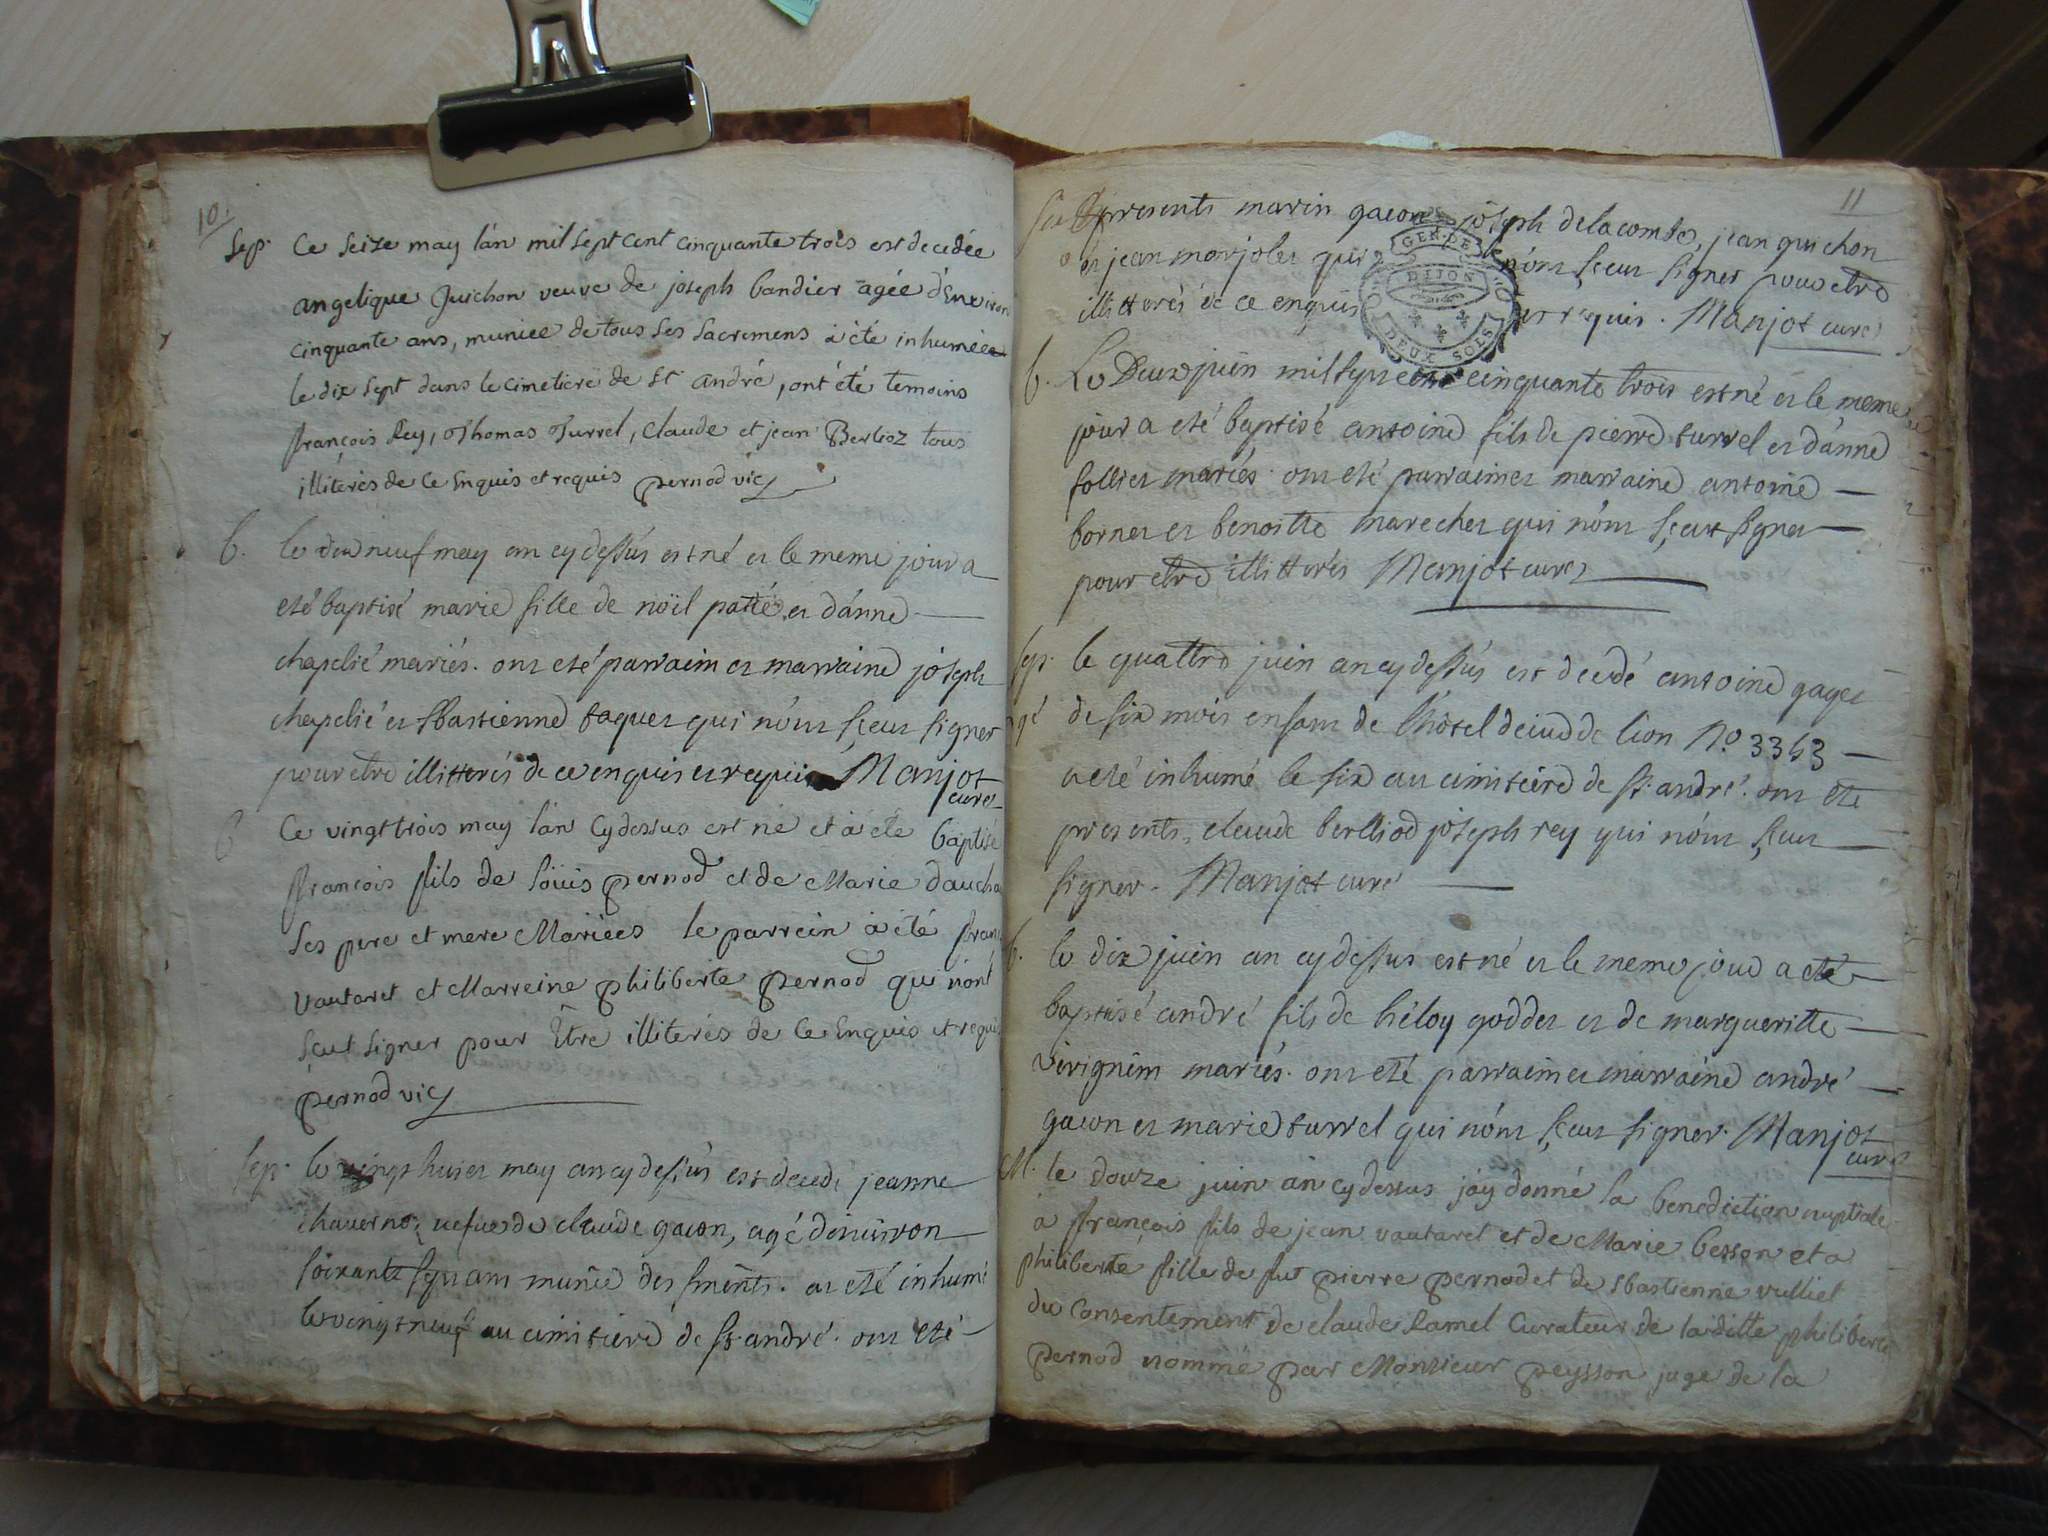 10.
Sep. Ce seize may l'an mil sept cent cinquante trois est decedée
angelique Guichon veuve de joseph bandier agée d'Environ
cinquante ans, muniee de tous ses sacremens à été inhumée
le dix sept dans le cimetiere de St. andré, ont été temoins
françois Rey, Thomas Turrel, Claude et jean Berlioz tous
illiterés de ce Enquis et requis pernod vic
b. le dixneuf may an cy dessús est né et le meme jour a
eté baptisé marie fille de noïl patté et d'anne
chapelié mariés. ont eté parraim et marraine jóseph
chapelié et sbastienne taquet qui n'ónt sçeut signer
pour etre illitterés de ce enquis et requis Manjot
curé
B Ce vingt trois may l'an cy dessus est né et à été baptisé
françois fils de loüis pernod et de Marie daucha
ses pere et mere Mariées le parrein à été fran
vautaret et Marreine philiberte pernod qui n'ont
sçeut signer pour Être illiterés de ce Enquis et requis
pernod vic
Sep. le vingt huiet may an cy dessus est decedé jeanne
chaverno, vefue de claude gacon, agé d'enuiron
soixante sept ans munïe des sments. at eté inhumé
le vingt neuf au cimitiere de st. andré. ont eté
11
presents marin gacon joseph delacombe, jean guichon
et jean marjolet qui n'ónt sçeut signer pour etre
illitterés de ce enquis et requis. Manjot curé
b. Le Deux juin mil sept cent cinquante trois est né et le meme
jour a eté baptisé antoine fils de pierre turrel et d'anne
folliet mariés. ont eté parraim et marraine antoine
bornet et benoitte marechet qui n'ónt sçeut signer
pour etre illitterés Manjot curé
Sep. le quattre juin an cy dessús est decedé antoine gaget
agé de six mois enfant de l'hôtel deiud de lion No. 3353
a eté inhumé le six au cimitiere de st. andré. ont eté
presents, claude berlliod joseph rey qui n'ónt sçeut
signer. Manjot curé
b. le dix juin an cy dessus est né et le meme jour a eté
baptisé andré fils de héloy goddet et de margueritte
virignim mariés. ont eté parraim et marraine andré
gacon et marie turrel qui n'ónt sçeut signer. Manjot
curé
M. le douze juin an cy dessus jáy donné la benediction nuptiale
à françois fils de jean vautaret et de Marie besson et a
philiberte fille de fut pierre pernod et de sbastienne vulliet
du Consentement de claude Ramel Curateur de la ditte philiberte
pernod nommé par Monsieur peysson juge de la
GEN. DE
DIJON
DEUX SOLS